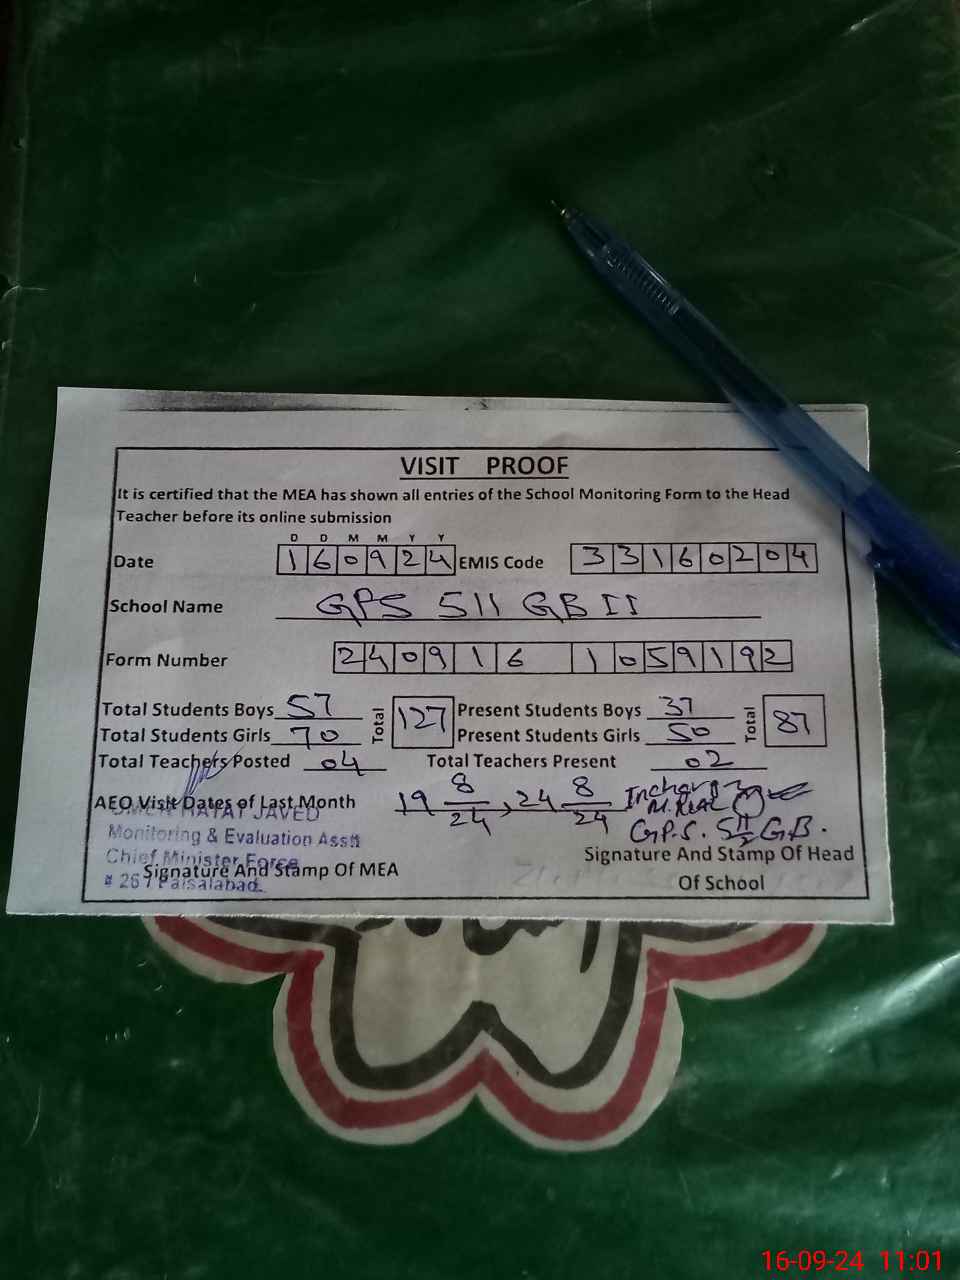 VISIT PROOF
It is certified that the MEA has shown all entries of the School Monitoring Form to the Head
Teacher before its online submission
D D M M Y Y
Date 160924 EMIS Code 33160204
School Name GPS 511 GB II
Form Number 240916 1059192
Total Students Boys 57 Total 127 Present Students Boys 37 Total 87
Total Students Girls 70 Present Students Girls 50
Total Teachers Posted 04 Total Teachers Present 02
AEO Visit Dates of Last Month 19 8/24, 24 8/24 Incharge
JAVED
Monitoring & Evaluation Asstt
G.P.S. 511 G.B.
Chief Minister Force
Signature And Stamp Of MEA
# 267 Faisalabad.
Signature And Stamp Of Head
Of School
16-09-24 11:01